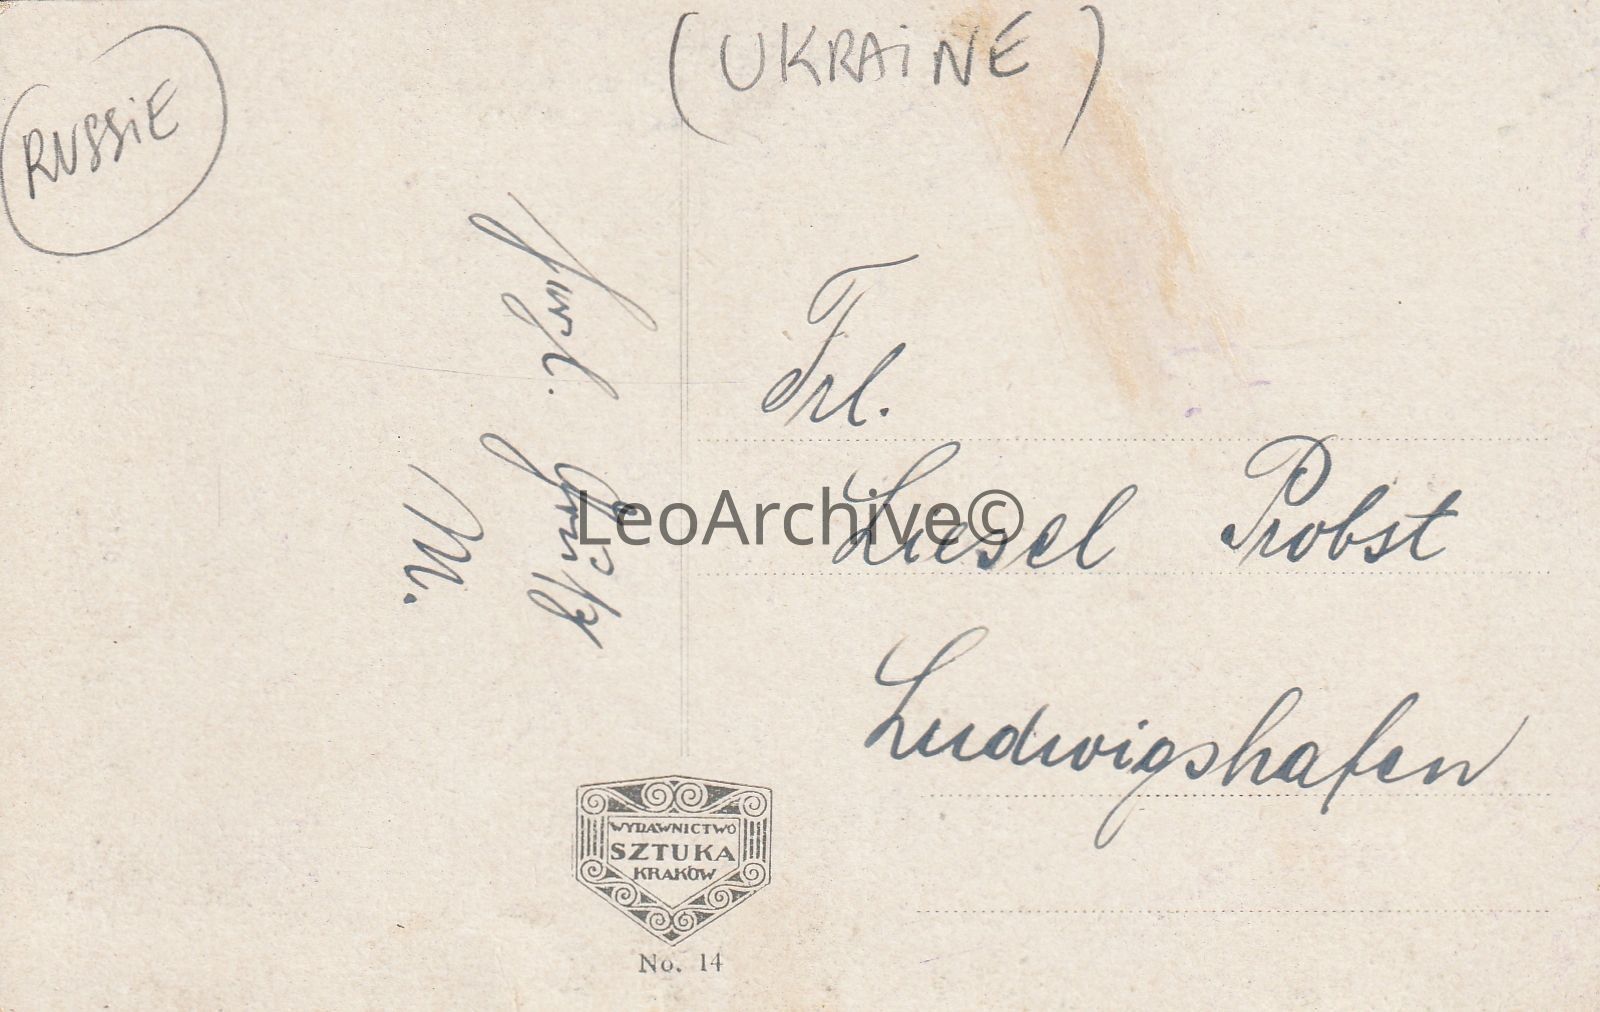 RUSSIE
(UKRAINE)
Frl.
Liesel Probst
Ludwigshafen
Herzl.
M.
LeoArchive©
WYDAWNICTWO
SZTUKA
KRAKÓW
No. 14